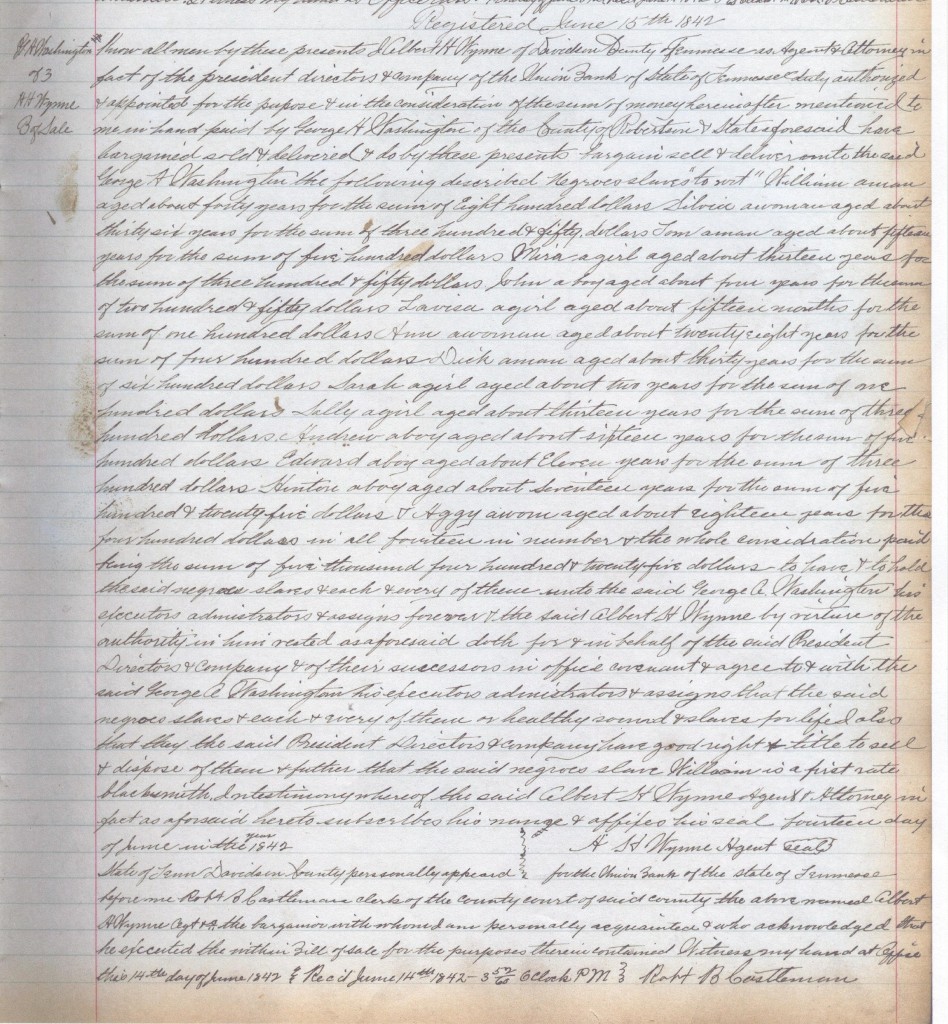 Registered June 15th 1842
G A Washington
of 3
A H Wynne
B of Sale
Know all men by these presents I Albert H Wynne of Davidson County Tennessee as Agent & Attorney in
fact of the president directors & company of the Union Bank of State of Tennessee duly authorized
& appointed for the pupose & in the consideration of the sum of money hereinafter mentioned to
me in hand paid by George A Washington of the County of Robertson & State aforesaid have
bargained sold & delivered & do by these presents bargain sell & deliver unto the said
George A Washington the following described Negroes slaves "to wit" William a man
aged about forty years for the sum of Eight hundred dollars Silvia a woman aged about
thirty six years for the sum of three hundred & fifty dollars Tom a man aged about fifteen
years for the sum of five hundred dollars Mira a girl aged about thirteen years for
the sum of three hundred & fifty dollars John a boy aged about four years for the sum
of two hundred & fifty dollars Lavisa a girl aged about fifteen months for the
sum of one hundred dollars Ann a woman aged about twenty eight years for the
sum of four hundred dollars Dick a man aged about thirty years for the sum
of six hundred dollars Sarah a girl aged about two years for the sum of one
hundred dollars Sally a girl aged about thirteen years for the sum of three
hundred dollars Andrew a boy aged about sixteen years for the sum of five
hundred dollars Edward a boy aged about Eleven years for the sum of three
hundred dollars Hinton a boy aged about Seventeen years for the sum of five
hundred & twenty five dollars & Aggy a wom aged about eighteen years for the
four hundred dollars in all fourteen in number & the whole considration paid
being the sum of five thousand four hundred & twenty five dollars to have & to hold
the said negroes slaves & each & every of them unto the said George A Washington his
executors admistrators & assigns forever & the said Albert H Wynne by virture of the
authority in him vested as aforesaid doth for & in behalf of the said President
Directors & Company & of their successors in office covenant & agree to & with the
said George A Washington his executors admistrators & assigns that the said
negroes slaves & each & every of them or healthy sound & slaves for life & also
that they the said President Directors & company have good right & title to sell
& dispose of them & futher that the said negroes slave William is a first rate
blacksmith. In testimony whereof the said Albert H Wynne Agent & Attorney in
fact as aforsaid hereto subscribes his name & affixes his seal fourteen day
of June in the year 1842 A H Wynne Agent seal
State of Tenn Davidson County personally appeared for the Union Bank of the state of Tennessee
before me Robt B Castleman clerk of the county court of said county the above named Albert
H Wynne Agt & A the bargainor with whom I am personally acquainted & who acknowledged that
he executed the within Bill of sale for the purposes therein contained Witness my hand at Office
this 14th day of June 1842 Rec'd June 14th 1842 - 3 52/60 O Clock PM Robt B Castleman